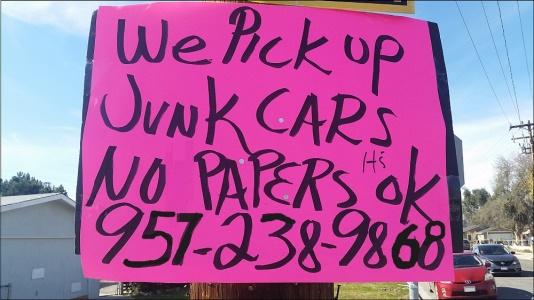 We Pick up
JUNK CARS
NO PAPERS Its ok
957-238-9868